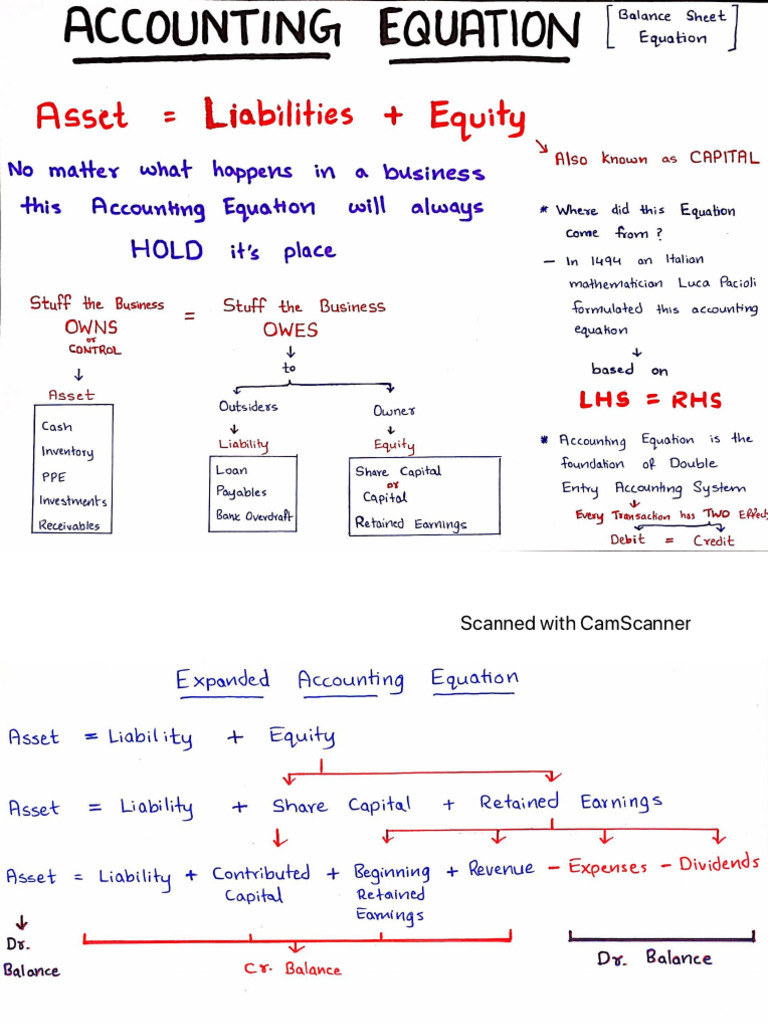 ACCOUNTING EQUATION
[Balance Sheet
Equation]
Asset = Liabilities + Equity
Also known as CAPITAL
No matter what happens in a business
this Accounting Equation will always
HOLD it's place
* Where did this Equation
come from?
- In 1494 an Italian
mathematician Luca Pacioli
formulated this accounting
equation
based on
LHS = RHS
* Accounting Equation is the
foundation of Double
Entry Accounting System
Every Transaction has TWO Effects
Debit = Credit
Stuff the Business = Stuff the Business
OWNS
or
CONTROL
OWES
to
Asset
Cash
Inventory
PPE
Investments
Receivables
Outsiders
Liability
Loan
Payables
Bank Overdraft
Owner
Equity
Share Capital
or
Capital
Retained Earnings
Scanned with CamScanner
Expanded Accounting Equation
Asset = Liability + Equity
Asset = Liability + Share Capital + Retained Earnings
Asset = Liability + Contributed Capital + Beginning Retained Earnings + Revenue - Expenses - Dividends
Dr.
Balance
Cr. Balance
Dr. Balance